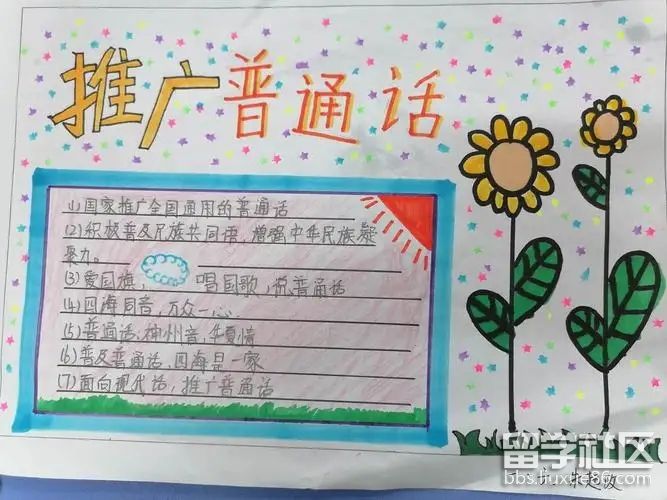 推广普通话
(1)国家推广全国通用的普通话
(2)积极普及民族共同语，增强中华民族凝
聚力。
(3)爱国旗，唱国歌，说普通话
(4)四海同音，万众一心
(5)普通话，神州音，华夏情
(6)普及普通话，四海是一家
(7)面向现代话，推广普通话
留学社区
bbs.liuxue86.com